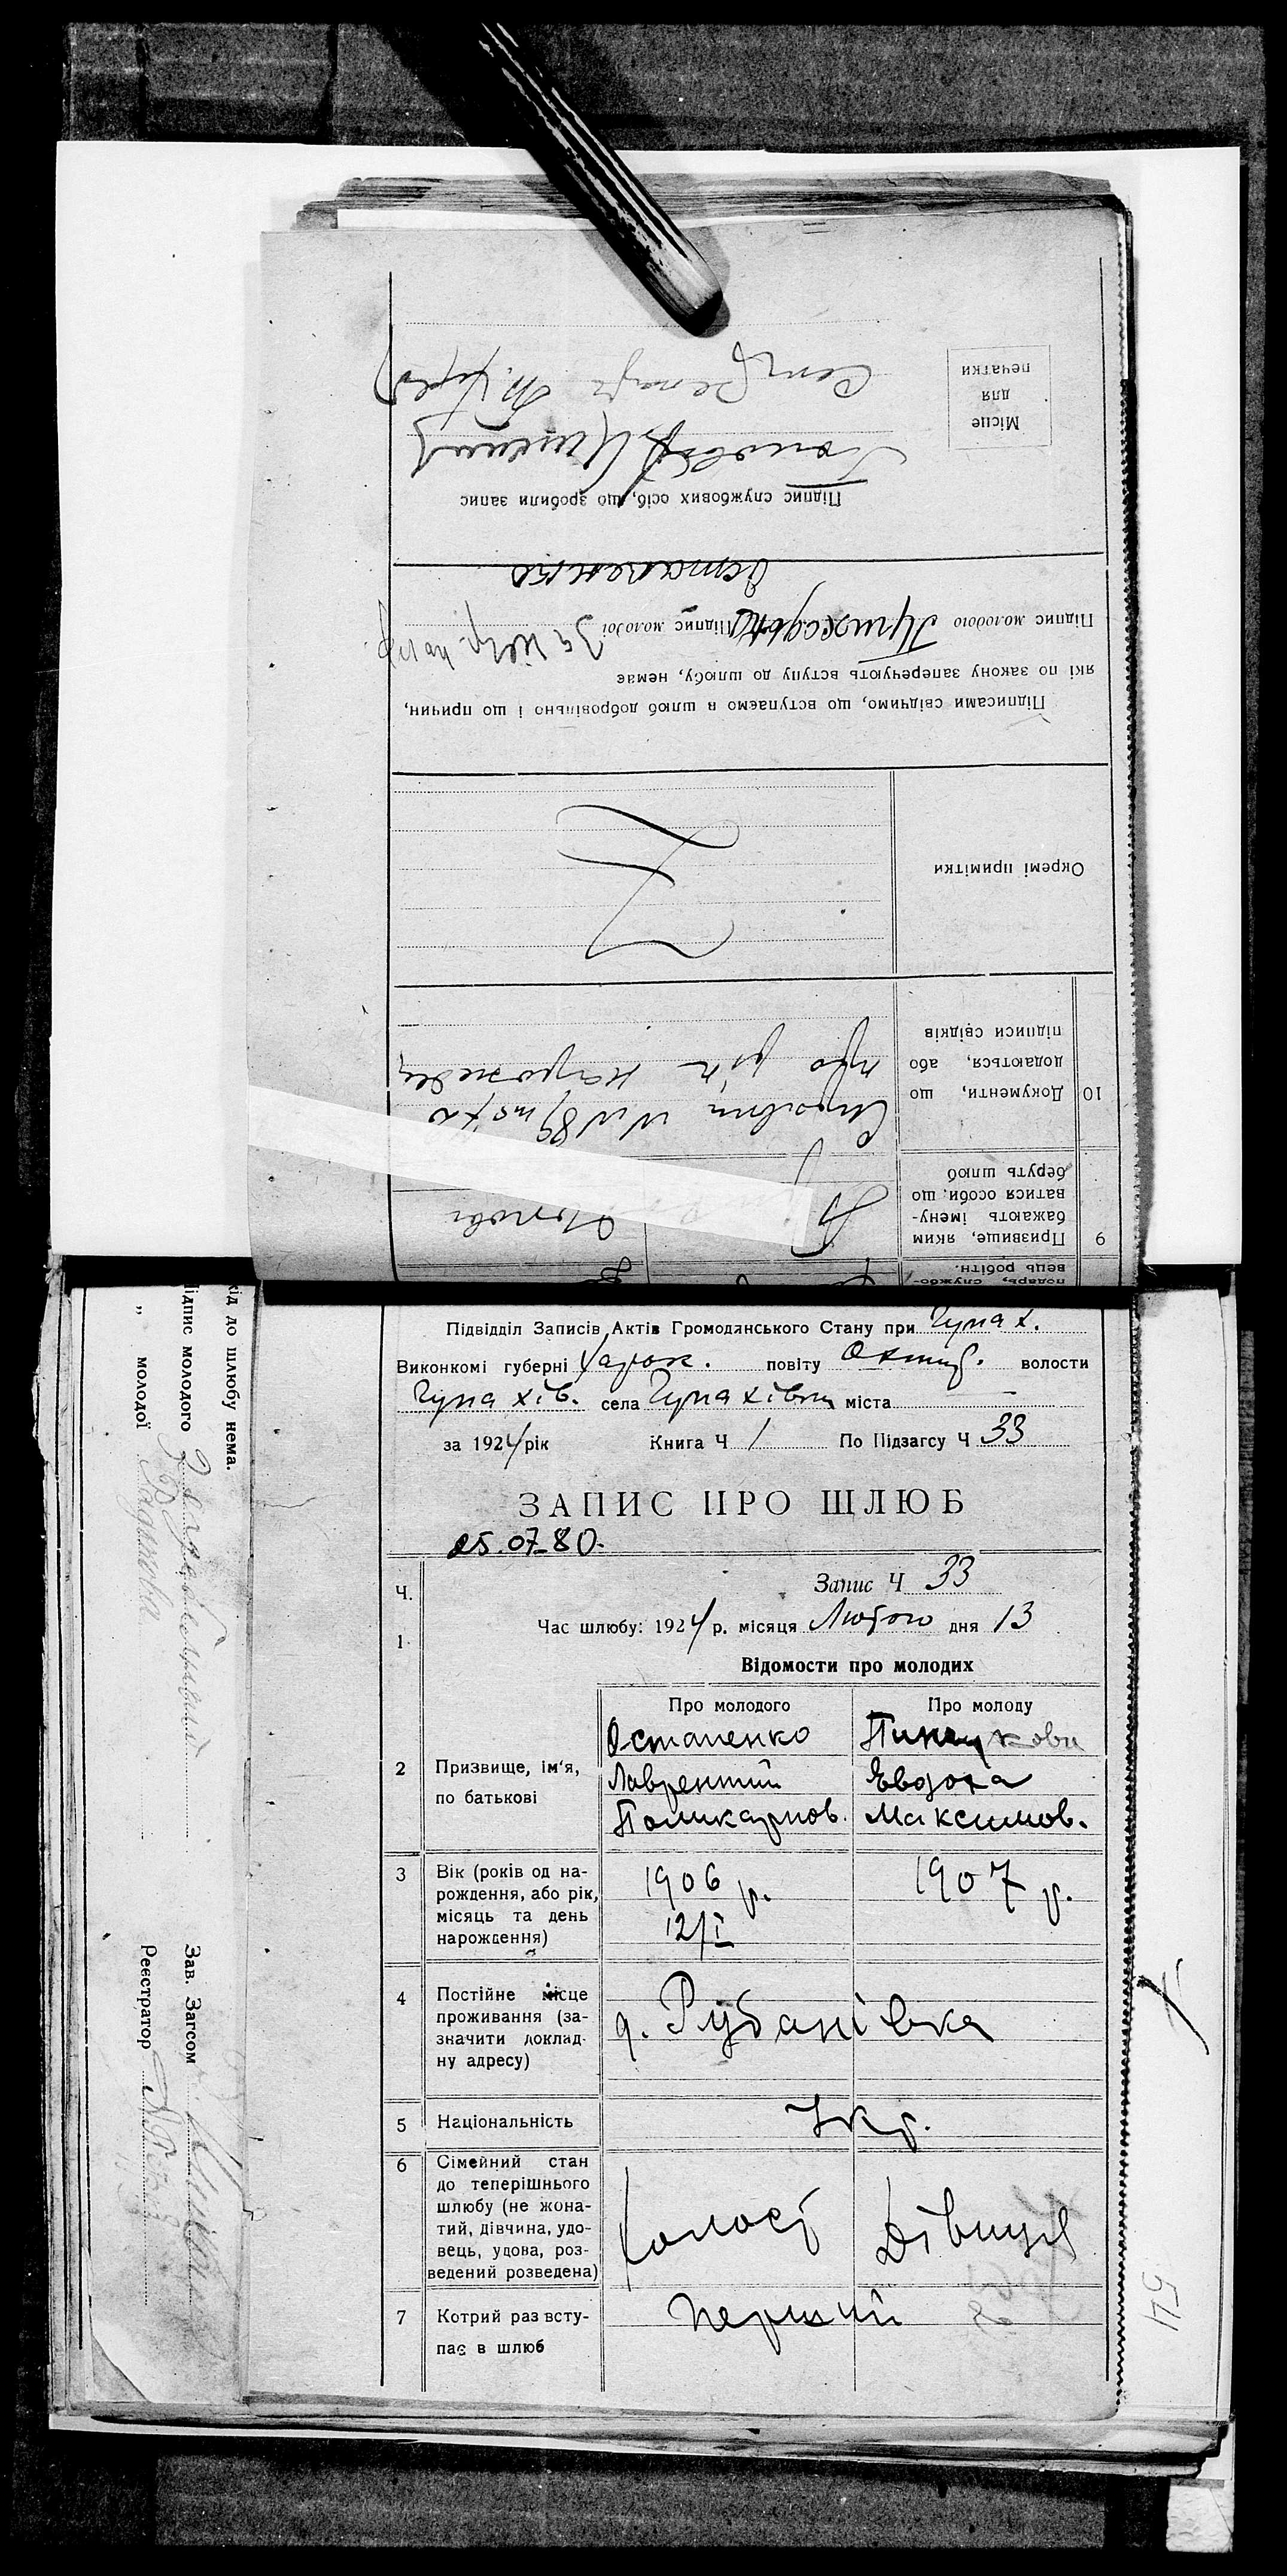 Місце
для
печатки
Підпис службових осіб, що зробили запис
Остапенко
Підпис молодого Підпис молодої За негр.
які по закону заперечують вступу до шлюбу, немає
Підписами свідчимо, що вступаємо в шлюб добровільно і що причин,
Окремі примітки
10 Документи, що
додаються, або
підписи свідків
про рік
9 Призвище, яким
бажають імену-
ватися особи, що
беруть шлюб
подарь, службо-
вець робітн.
Підвідділ Записів Актів Громодянського Стану при Чупах.
Виконкомі губерні Харьк. повіту Охтир. волости
Чупахів. села Чупахівки міста —
за 1924 рік Книга Ч 1 По Підзагсу Ч 33
ЗАПИС ПРО ШЛЮБ
25.07-80.
Запис Ч 33
Ч.
1. Час шлюбу: 1924 р. місяця Лютого дня 13
Відомости про молодих
Про молодого Про молоду
2 Призвище, ім'я,
по батькові
Остапенко
Лаврентий Евдоха
Поликарпов. Максимов.
3 Вік (років од на-
рождення, або рік,
місяць та день
нарождення)
1906 р. 1907 р.
12/I
4 Постійне місце
проживання (за-
значити доклад-
ну адресу)
д. Рубанівка
5 Національність Укр.
6 Сімейний стан
до теперішнього
шлюбу (не жона-
тий, дівчина, удо-
вець, удова, роз-
ведений розведена)
Холост Дівиця
7 Котрий раз всту-
пає в шлюб
Перший
54
хід до шлюбу нема.
ідпис молодого
„ молодої
Зав. Загсом
Реєстратор